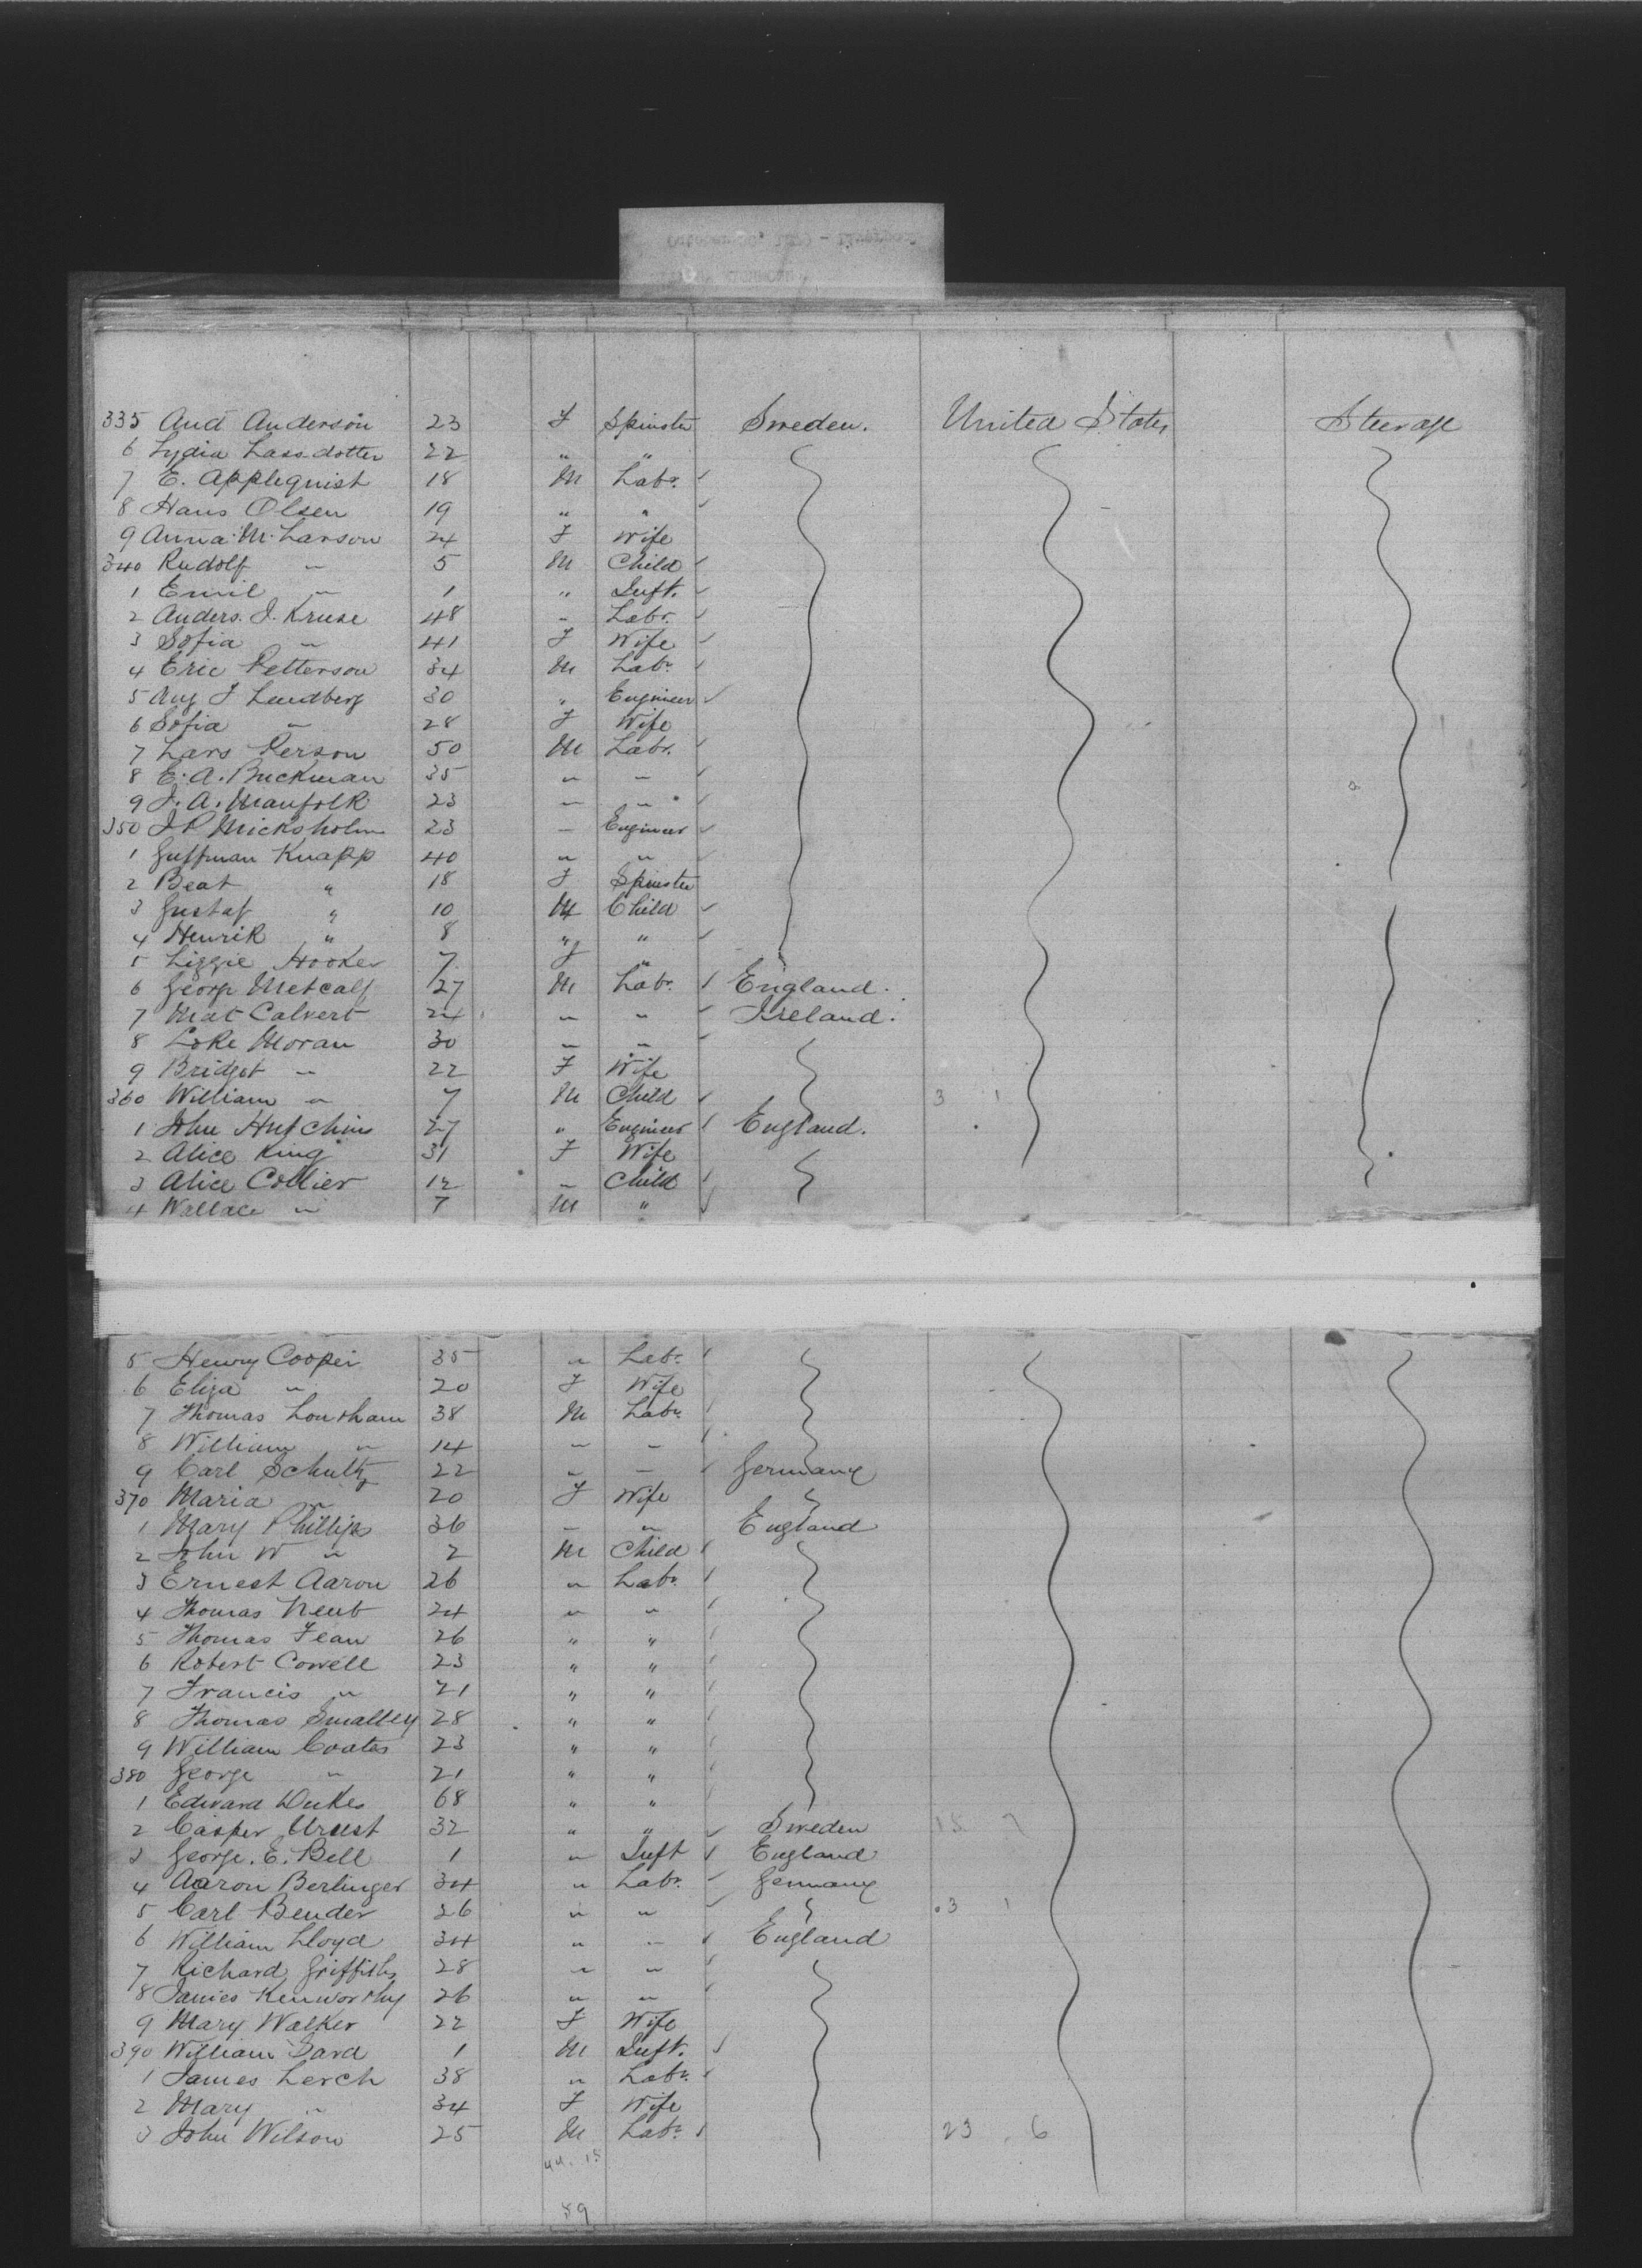 335 And Anderson 23 F Spinster Sweden. United States Steerage
6 Lydia Lassdotter 22 " "
7 E. Applequist 18 M Labr.
8 Hans Olsen 19 " "
9 Anna M. Larson 24 F Wife
340 Rudolf " 5 M Child
1 Emil " 1 " Inft.
2 Anders. J. Kruse 48 " Labr.
3 Sofia " 41 F Wife
4 Eric Petterson 34 M Labr
5 Aug J Lundberg 30 " Engineer
6 Sofia " 28 F Wife
7 Lars Person 50 M Labr.
8 E. A. Buckman 35 " "
9 J. A. Manfolk 23 " "
350 J P Micksholm 23 " Engineer
1 Guffman Knapp 40 " "
2 Beat " 18 F Spinster
3 Gustaf " 10 M Child
4 Henrik " 8 " "
5 Lizzie Hooker 7 F "
6 George Metcalf 27 M Labr. England.
7 Mat Calvert 24 " " Ireland.
8 Loke Moran 30 " "
9 Bridget " 22 F Wife
360 William " 7 M Child 3 1
1 John Hutchins 27 " Engineer England.
2 Alice King 31 F Wife
3 Alice Collier 12 " Child
4 Wallace " 7 M "
5 Henry Cooper 35 " Labr.
6 Eliza " 20 F Wife
7 Thomas Lowtham 38 M Labr.
8 William " 14 " "
9 Carl Schultz 22 " " Germany
370 Maria " 20 F Wife
1 Mary Phillips 36 " " England
2 John W " 2 M Child
3 Ernest Aaron 26 " Labr.
4 Thomas Neut 24 " "
5 Thomas Flan 26 " "
6 Robert Cowell 23 " "
7 Francis " 21 " "
8 Thomas Smalley 28 " "
9 William Coates 23 " "
380 George " 21 " "
1 Edward Dukes 68 " "
2 Casper Urust 32 " " Sweden 15 7
3 George. E. Bell 1 " Inft England
4 Aaron Berlinger 34 " Labr. Germany
5 Carl Bender 26 " " 3 1
6 William Lloyd 34 " " England
7 Richard Griffiths 28 " "
8 James Kenworthy 26 " "
9 Mary Walker 22 F Wife
390 William Sard 1 M Inft.
1 James Lerch 38 " Labr.
2 Mary " 34 F Wife
3 John Wilson 25 M Labr. 23 6
44. 15
59